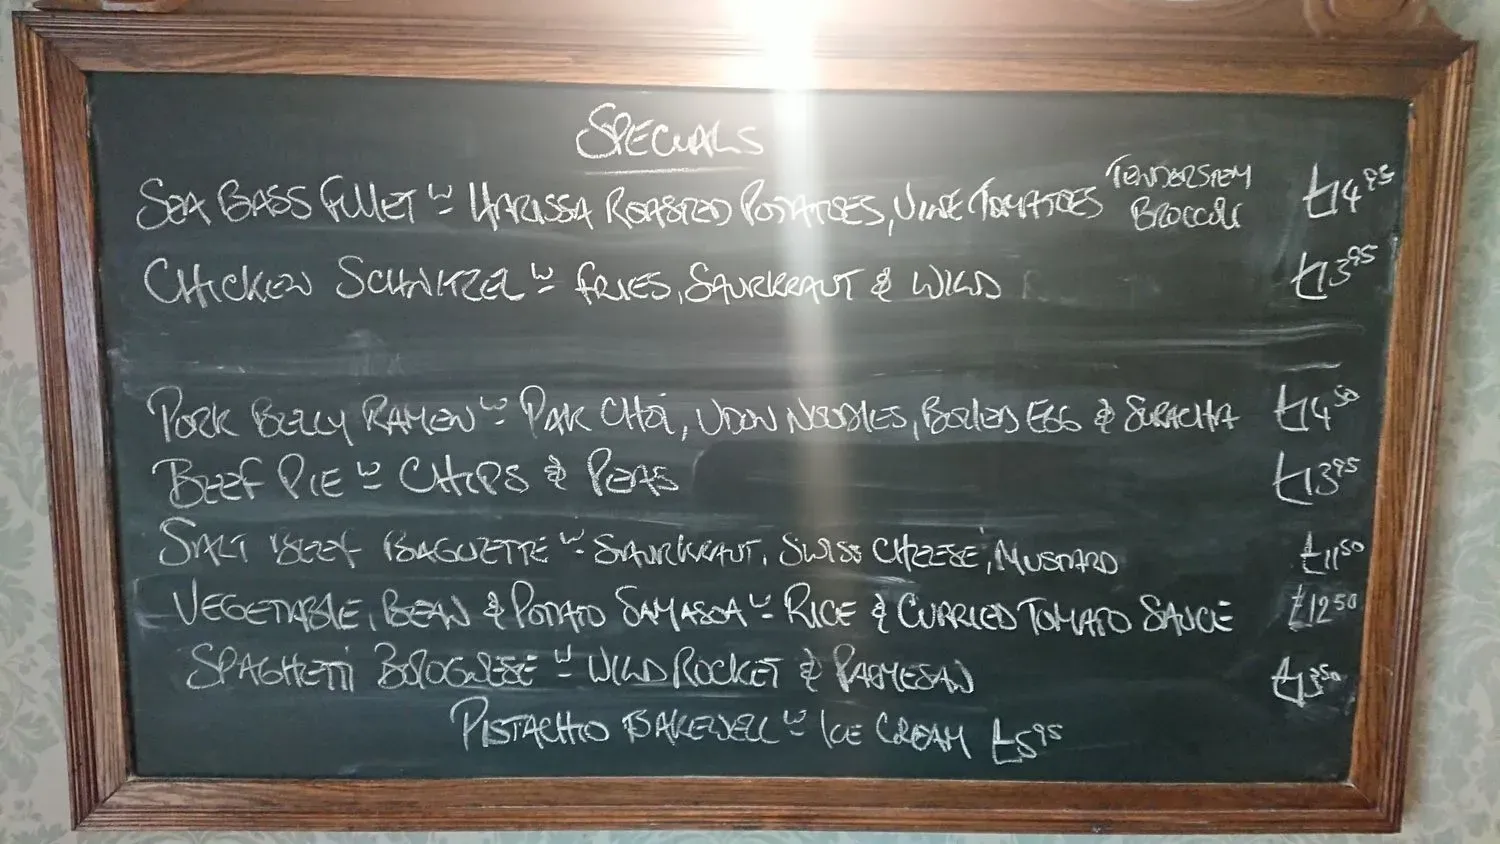 SPECIALS
SEA BASS FILLET W HARISSA ROASTED POTATOES, VINE TOMATOES TENDERSTEM BROCCOLI £14 95
CHICKEN SCHNITZEL W FRIES, SAURKRAUT & WILD £13 95
PORK BELLY RAMEN W PAK CHOI, UDON NOODLES, BOILED EGG & SURACHA £14 50
BEEF PIE W CHIPS & PEAS £13 95
SALT BEEF BAGUETTE W SAURKRAUT, SWISS CHEESE, MUSTARD £11 50
VEGETABLE, BEAN & POTATO SAMASOA W RICE & CURRIED TOMATO SAUCE £12 50
SPAGHETTI BOLOGNESE W WILD ROCKET & PARMESAN £13 50
PISTACHIO BAKEWELL W ICE CREAM £5 95